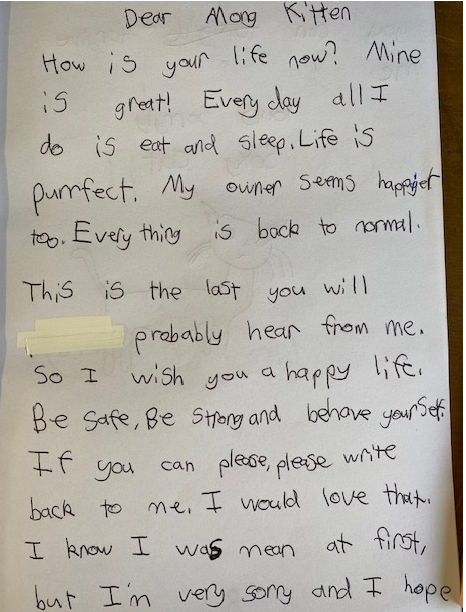 Dear Mong Kitten
How is your life now? Mine
is great! Every day all I
do is eat and sleep. Life is
purrfect. My owner seems happier
too. Every thing is back to normal.
This is the last you will
probably hear from me.
So I wish you a happy life.
Be safe, Be strong and behave yourself.
If you can please, please write
back to me. I would love that.
I know I was mean at first,
but I'm very sorry and I hope